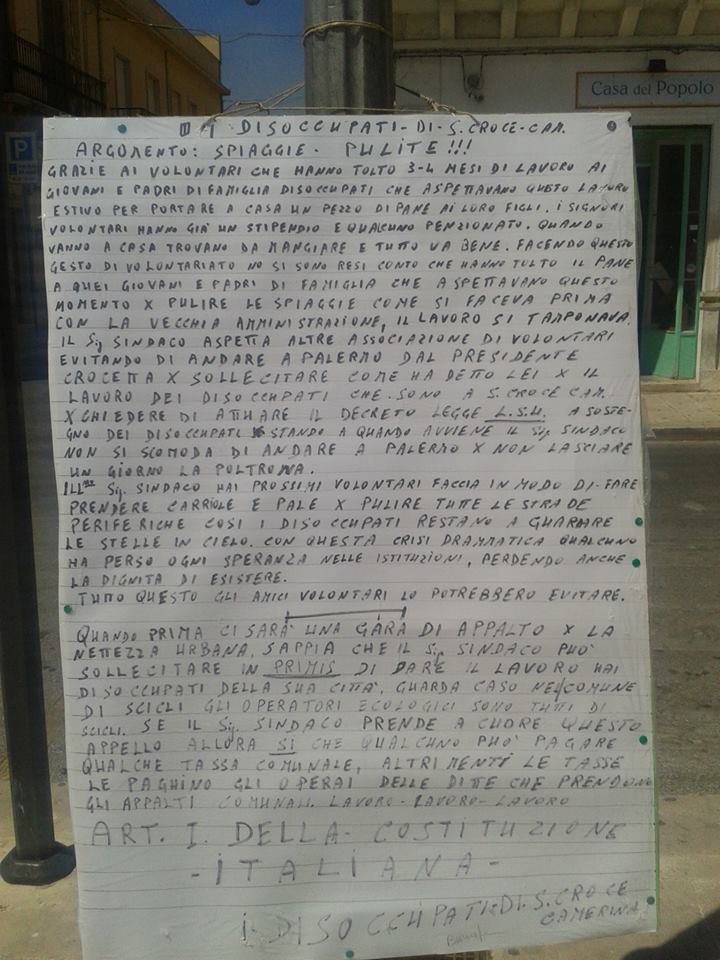 Casa del Popolo
P
I DISOCCUPATI-DI-S.CROCE-CAM.
ARGOMENTO: SPIAGGIE. PULITE!!!
GRAZIE AI VOLONTARI CHE HANNO TOLTO 3-4 MESI DI LAVORO AI
GIOVANI E PADRI DI FAMIGLIA DISOCCUPATI CHE ASPETTAVANO QUESTO LAVORO
ESTIVO PER PORTARE A CASA UN PEZZO DI PANE AI LORO FIGLI. I SIGNORI
VOLONTARI HANNO GIA' UN STIPENDIO E QUALCUNO PENZIONATO. QUANDO
VANNO A CASA TROVANO DA MANGIARE E TUTTO VA BENE. FACENDO QUESTO
GESTO DI VOLONTARIATO NO SI SONO RESI CONTO CHE HANNO TOLTO IL PANE
A QUEI GIOVANI E PADRI DI FAMIGLIA CHE ASPETTAVANO QUESTO
MOMENTO X PULIRE LE SPIAGGIE COME SI FACEVA PRIMA
CON LA VECCHIA AMMINISTRAZIONE, IL LAVORO SI TAMPONAVA.
IL Sig SINDACO ASPETTA ALTRE ASSOCIAZIONE DI VOLONTARI
EVITANDO DI ANDARE A PALERMO DAL PRESIDENTE
CROCETTA X SOLLECITARE COME HA DETTO LEI X IL
LAVORO DEI DISOCCUPATI CHE. SONO A S. CROCE CAM.
X CHIEDERE DI ATTUARE IL DECRETO LEGGE L.S.U. A SOSTE-
GNO DEI DISOCCUPATI STANDO A QUANDO AVVIENE IL Sig SINDACO
NON SI SCOMODA DI ANDARE A PALERMO X NON LASCIARE
UN GIORNO LA POLTRONA.
ILL.mo Sig. SINDACO HAI PROSSIMI VOLONTARI FACCIA IN MODO DI-FARE
PRENDERE CARRIOLE E PALE X PULIRE TUTTE LE STRADE
PERIFERICHE COSI I DISOCCUPATI RESTANO A GUARDARE
LE STELLE IN CIELO. CON QUESTA CRISI DRAMMATICA QUALCUNO
HA PERSO OGNI SPERANZA NELLE ISTITUZIONI, PERDENDO ANCHE
LA DIGNITA DI ESISTERE.
TUTTO QUESTO GLI AMICI VOLONTARI LO POTREBBERO EVITARE.
QUANDO PRIMA CI SARA' UNA GARA DI APPALTO X LA
NETTEZZA URBANA, SAPPIA CHE IL Sig SINDACO PUO'
SOLLECITARE IN PRIMIS DI DARE IL LAVORO HAI
DISOCCUPATI DELLA SUA CITTA'. GUARDA CASO NEL COMUNE
DI SCICLI GLI OPERATORI ECOLOGICI SONO TUTTI DI
SCICLI. SE IL Sig. SINDACO PRENDE A CUORE QUESTO
APPELLO ALLORA SI CHE QUALCUNO PUO' PAGARE
QUALCHE TASSA COMUNALE, ALTRIMENTI LE TASSE
LE PAGHINO GLI OPERAI DELLE DITTE CHE PRENDONO
GLI APPALTI COMUNALI. LAVORO-LAVORO-LAVORO
ART. I. DELLA- COSTITUZIONE
-ITALIANA-
i DISOCCUPATI-DI-S. CROCE
CAMERINA